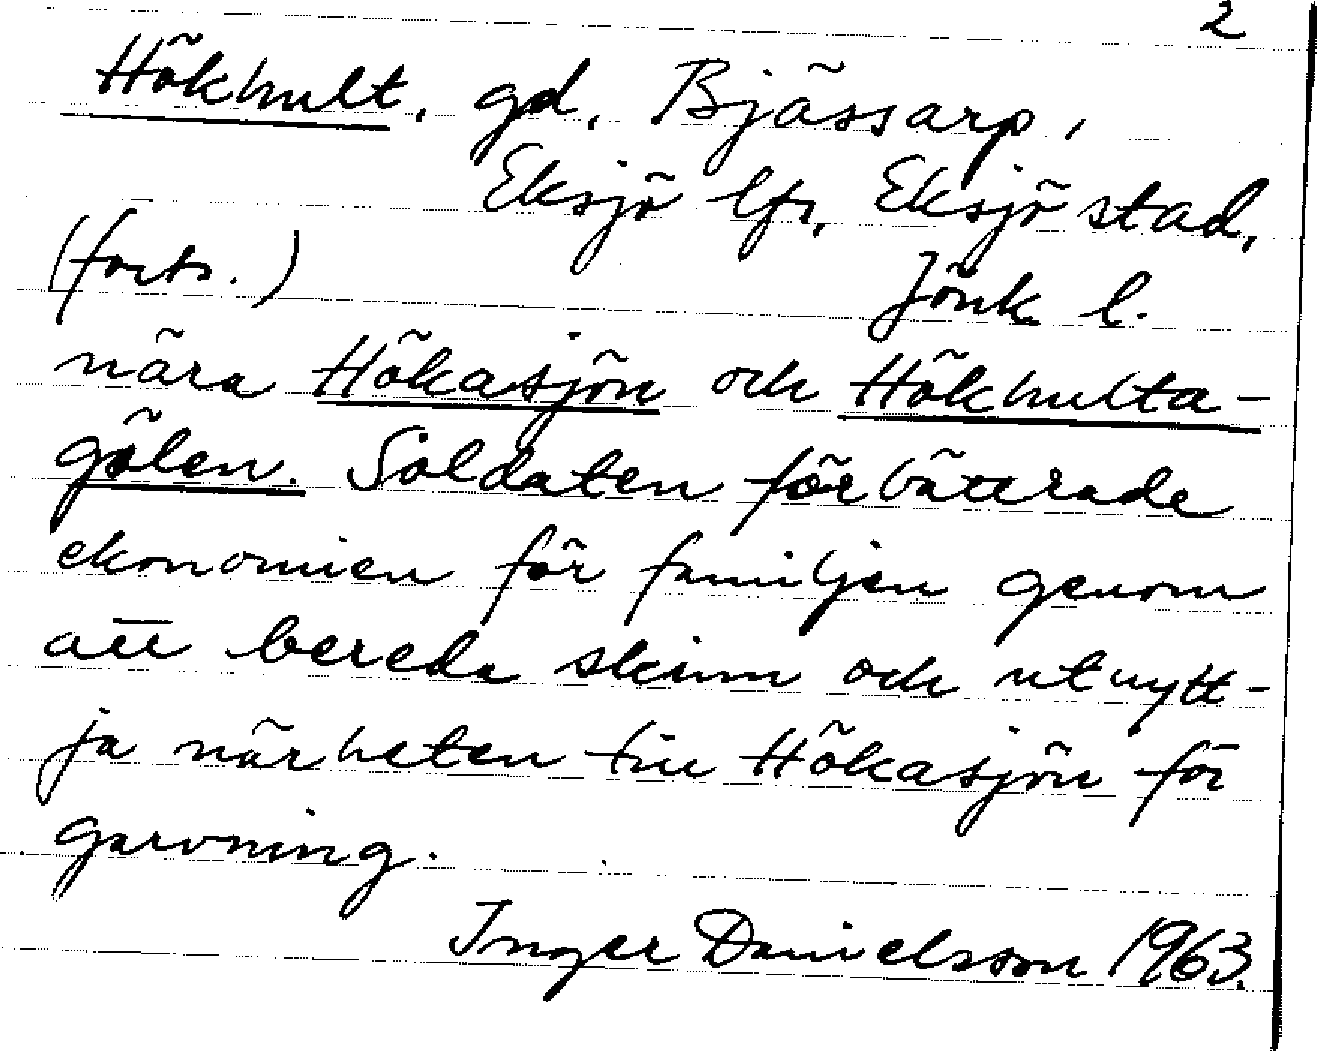 2
Hökhult, gd, Bjässarp,
Eksjö lfs, Eksjö stad,
(forts.) Jönk. l.
nära Hökasjön och Hökhulta-
gölen. Soldaten förbättrade
ekonomien för familjen genom
att bereda skinn och utnytt-
ja närheten till Hökasjön för
garvning.
Inger Danielsson 1963.